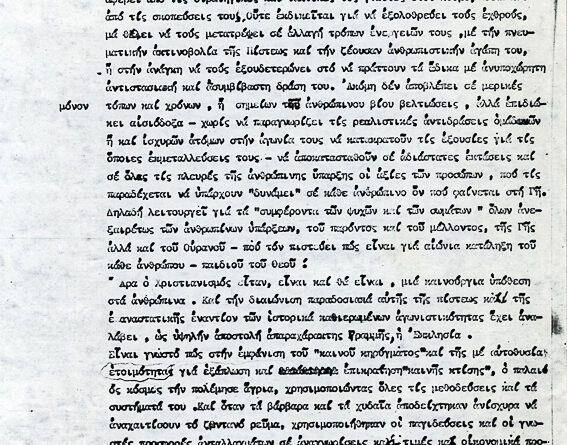 ἀπό τίς σκοπεύσεις τους. Οὔτε ἐκδικεῖται γιά νά ἐξολοθρεύει τούς ἐχθρούς,
μά θέλει νά τούς μετατρέψει σέ ἀλλαγή τρόπων ἐνεργειῶν τους ,μέ τήν πνευ-
ματικήν ἀκτινοβολία τῆς Πίστεως καί τήν ζέουσαν ἀνθρωπιστικήν ἀγάπη του,
ἤ στήν ἀνάγκη νά τούς ἐξουδετερώνει στό νά πράττουν τά ἄδικα μέ ἀνυποχώρητη
ἀντιστασιακή καί ἀσυμβίβαστη δράση του. Ἀκόμη δέν ἀποβλέπει σέ μερικές
μόνον τόπων καί χρόνων , ἤ σημείων τοῦ ἀνθρώπινου βίου βελτιώσεις , ἀλλά ἐπιδιώ-
κει αἰσιόδοξα - χωρίς νά παραγνωρίζει τίς ρεαλιστικές ἀντιδράσεις ὁμάδων
ἤ καί ἰσχυρῶν ἀτόμων στήν ἀγωνία τους νά κατακρατοῦν τίς ἐξουσίες γιά τίς
ὅποιες ἐκμεταλλεύσεις τους - νά ἀποκατασταθοῦν σέ ἀδιάστατες ἐκτάσεις καί
σέ ὅλες τίς πλευρές τῆς ἀνθρώπινης ὕπαρξης οἱ ἀξίες τῶν προσώπων , πού τίς
παραδέχεται νά ὑπάρχουν "δυνάμει" σέ κάθε ἀνθρώπινο ὄν πού φαίνεται στή Γῆ.
Δηλαδή λειτουργεῖ γιά τά "συμφέροντα τῶν ψυχῶν καί τῶν σωμάτων " ὅλων ἀνε-
ξαιρέτως τῶν ἀνθρωπίνων ὑπάρξεων, τοῦ παρόντος καί τοῦ μέλλοντος, τῆς Γῆς
ἀλλά καί τοῦ Οὐρανοῦ - πού τόν πιστεύει πώς εἶναι γιά αἰώνια κατάληξη τοῦ
κάθε ἀνθρώπου - παιδιοῦ τοῦ Θεοῦ !
Ἄρα ὁ Χριστιανισμός εἶταν, εἶναι καί θά εἶναι , μιά καινούργια ὑπόθεση
στά ἀνθρώπινα . Καί τήν διαιώνιση παραδοσιακά αὐτῆς τῆς πίστεως καί τῆς
ἐπαναστατικῆς ἐναντίον τῶν ἱστορικά καθιερωμένων ἀγωνιστικότητας ἔχει ἀνα-
λάβει , ὡς ὑψηλήν ἀποστολή ἀπαραχάρακτης Γραμμῆς,ἡ Ἐκκλησία .
Εἶναι γνωστό πώς στήν ἐμφάνιση τοῦ "καινοῦ κηρύγματος"καί τῆς μέ αὐτοθυσία
ἑτοιμότητας γιά ἐξάπλωση καί ἐπικράτηση"καινῆς κτίσης", ὁ παλαι-
ός κόσμος τήν πολέμησε ἄγρια, χρησιμοποιώντας ὅλες τίς μεθοδεύσεις καί τά
συστήματά του . Καί ὅταν τά βάρβαρα καί τά χυδαῖα ἀποδείχτηκαν ἀνίσχυρα νά
ἀναχαιτίσουν τό ζωντανό ρεῦμα, χρησιμοποιήθηκαν οἱ παγιδεύσεις καί οἱ γνω-
στές προσφορές ἀνταλλαγμάτων σέ ἀναγνωρίσεις καί τιμές καί οἰκονομικά προ-